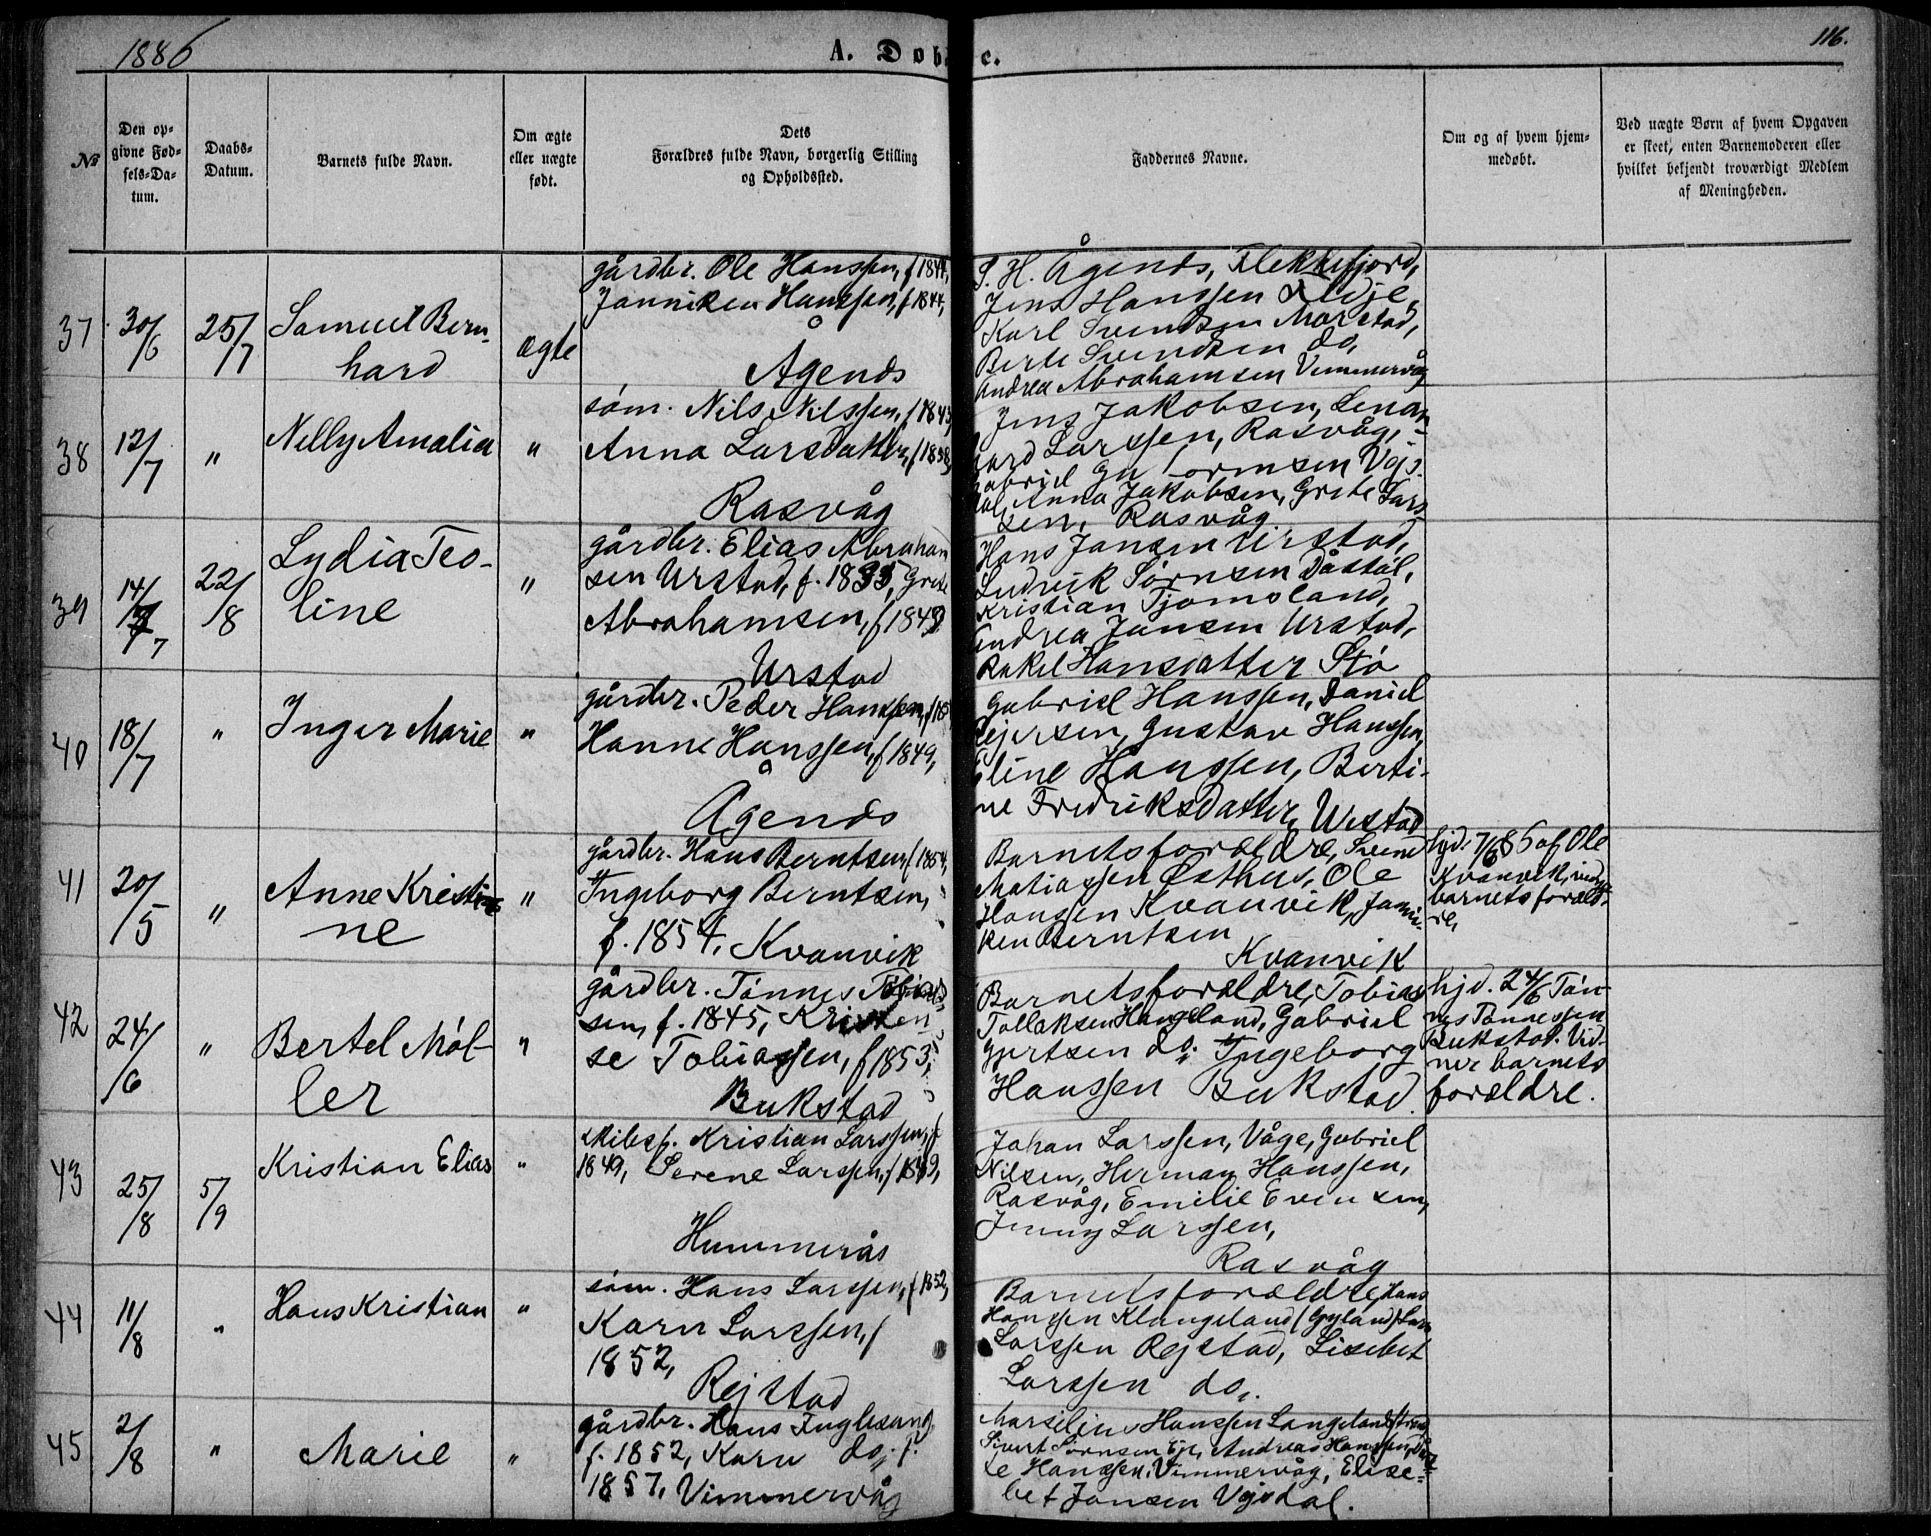 1886
A. Døbte.
116.
№
Den op-
givne Fød-
sels-Da-
tum.
Daabs-
Datum.
Barnets fulde Navn.
Om ægte
eller uægte
født.
Dets
Forældres fulde Navn, borgerlig Stilling
og Opholdssted.
Faddernes Navne.
Om og af hvem hjem-
medøbt.
Ved uægte Børn af hvem Opgaven
er skeet, enten Barnemoderen eller
hvilket bekjendt troværdigt Medlem
af Menigheden.
37
30/6
25/7
Samuel Bern-
hard
ægte
gårdbr. Ole Hanssen, f 1844,
Janniken Hanssen, f 1844,
Ågenes
S. H. Ågenes, Flekkefjord,
Jens Hanssen
Karl Svendsen Morstad,
Berte Svendsen do,
Andrea Abrahamsen Vimmervåg
38
12/7
"
Nelly Amalia
"
søm. Nils Nilssen, f 1843,
Anna Larsdatter, f 1858,
Rasvåg
Jens Jakobsen, Lenam
hard Larssen, Rasvåg,
Gabriel Gu tormsen Vejs-
dal, Anna Jakobsen, Grete Lars-
sen, Rasvåg.
39
14/7
22/8
Lydia Teo-
line
"
gårdbr. Elias Abraham
sen Urstad, f. 1835, Grete
Abrahamsen, f 1849
Urstad
Hans Jansen Urstad,
Ludvik Sørnsen Dåstøl,
Kristian Tjomsland,
Andrea Jansen Urstad,
Rakel Hansdatter Stø
40
18/7
"
Inger Marie
"
gårdbr. Peder Hanssen, f 185
Hanne Hanssen, f 1849,
Ågenes
Gabriel Hanssen, Daniel
Rejersen, Gustav Hanssen,
Eline Hanssen, Berti-
ne Fredriksdatter, Urstad
41
20/5
"
Anne Kristi-
ne
"
gårdbr. Hans Berntsen, f 1854,
Ingeborg Berntsen,
f. 1854, Kvanvik
Barnets forældre, Svend
Matiassen Østhus, Ole
Hansen Kvanvik, Janni-
ken Berntsen
Kvanvik
hjd. 7/6 86 af Ole
Kvanvik, vidner
barnets foræld-
re,
42
24/6
"
Bertel Møl-
ler
"
gårdbr. Tønnes Tobias-
sen, f. 1845, Kristen
se Tobiassen, f 1853,
Bukstad
Barnets forældre, Tobias
Tollaksen Haugeland, Gabriel
Gjertsen do. Ingeborg
Hanssen Bukstad
hjd. 24/6 Tøn-
nes Tønnessen
Bukstad. Vid-
ner barnets
forældre.
43
25/8
5/9
Kristian Elias
"
skibsf. Kristian Larssen, f
1849, Serene Larssen, f 1849,
Hummerås
Johan Larssen, Våge, Gabriel
Nilsen, Herman Hanssen,
Rasvåg, Emilie Evensen,
Jenny Larssen,
Rasvåg
44
11/8
"
Hans Kristian
"
søm. Hans Larssen, f 1852,
Karn Larssen, f
1852,
Rejstad
Barnets forældre, Hans
Hanssen Klungeland (Gyland), Lars
Larssen Rejstad, Lisebet
Larssen do,.
45
2/8
"
Marie
"
gårdbr. Hans Inglesand,
f. 1852, Karn do, f.
1857, Vimmervåg
Marselius Hanssen Langeland
Sivert Sørnsen Eje, Andreas Hanssen, Ber
te Hanssen, Vimmervåg, Elise-
bet Jansen Vejsdal.